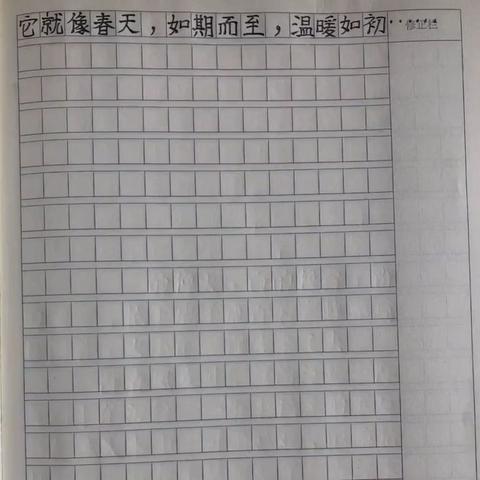 它就像春天，如期而至，温暖如初……
修正栏